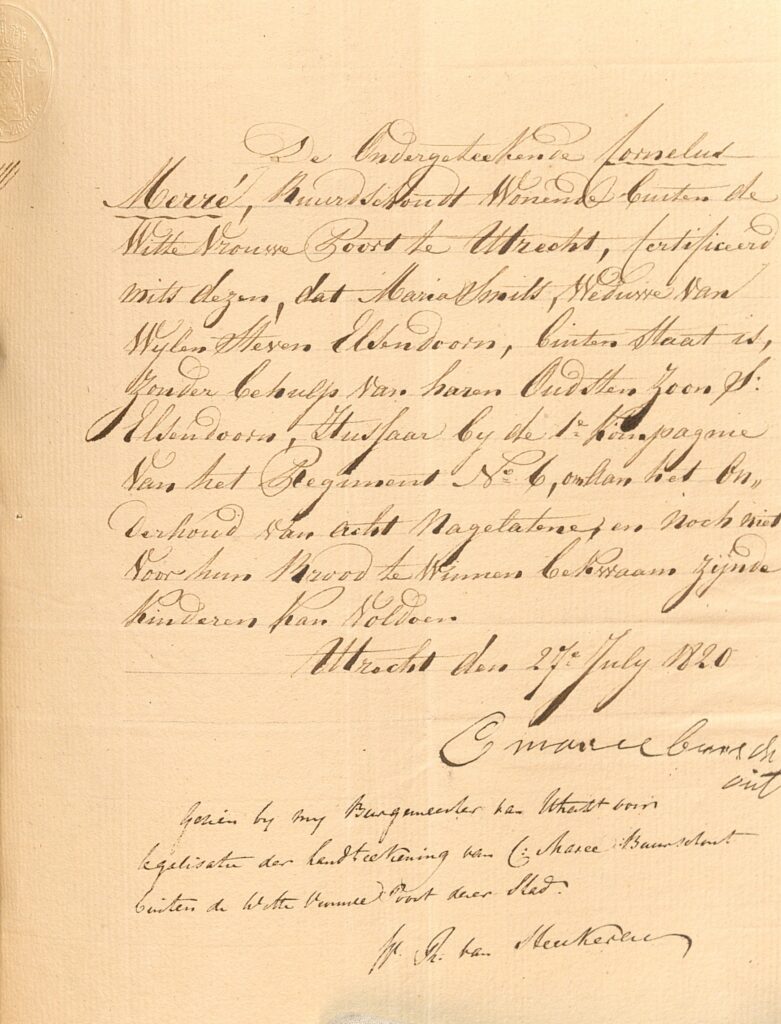 De Ondergeteekende Cornelus
Merré, Buurdschoudt Wonende buiten de
Witte Vrouwe Poort te Utrecht, Certificeerd
mits dezen, dat Maria Smits, Weduwe van
Wylen Steven Elsendoorn, buiten Staat is,
Zonder behulp van haren Oudsten Zoon S:
Elsendoorn, Hussaar by de 1e Kompagnie
van het Regiment No 6, om aan het On„
derhoud van acht Nagelatene, en Noch niet
voor hun Brood te Winnen bekwaam zijnde
Kinderen kan voldoen
Utrecht den 27e July 1820
C maree buurscho
out
Gezien by my Burgemeester van Utrecht voor
legalisatie der handteekening van C: Maree Buurschout
buiten de Witte Vrouwe Poort dezer Stad.
van